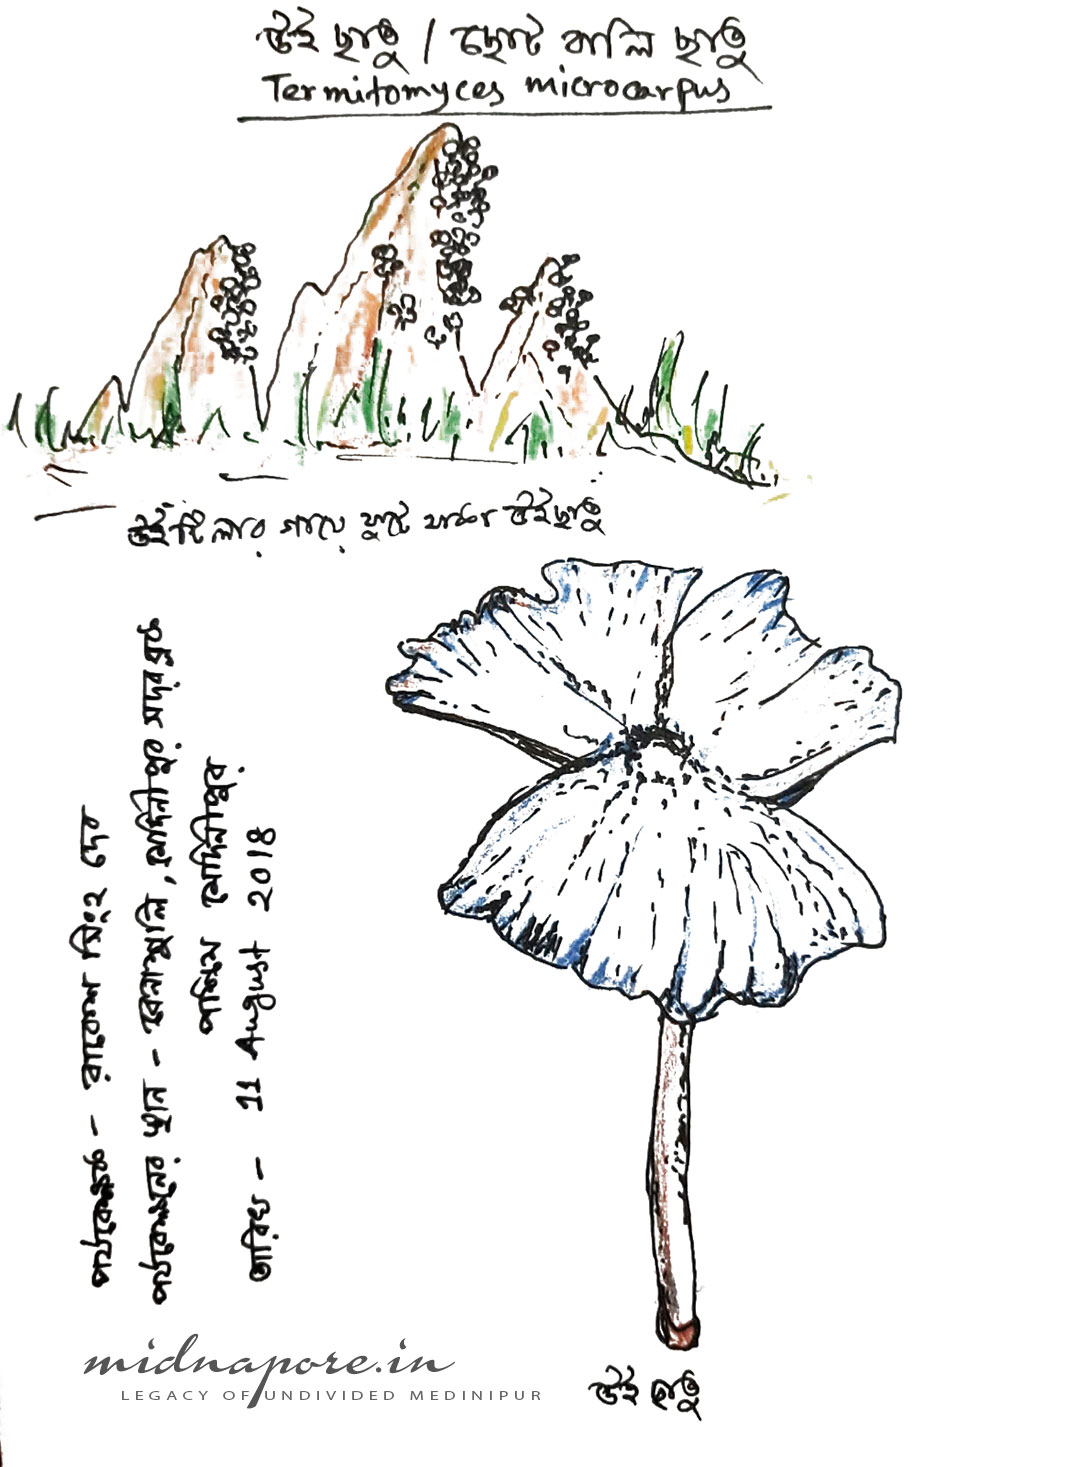 উই ছাতু / ছোট বালি ছাতু
Termitomyces microcarpus
উইটিলার গায়ে ফুটে থাকা উইছাতু
পর্যবেক্ষক - রাকেশ সিংহ দেব
পর্যবেক্ষনের স্থান - বেনাশুলি, মেদিনীপুর সদর ব্লক
পশ্চিম মেদিনীপুর
তারিখ - 11 August 2018
উই ছাতু
midnapore.in
LEGACY OF UNDIVIDED MEDINIPUR